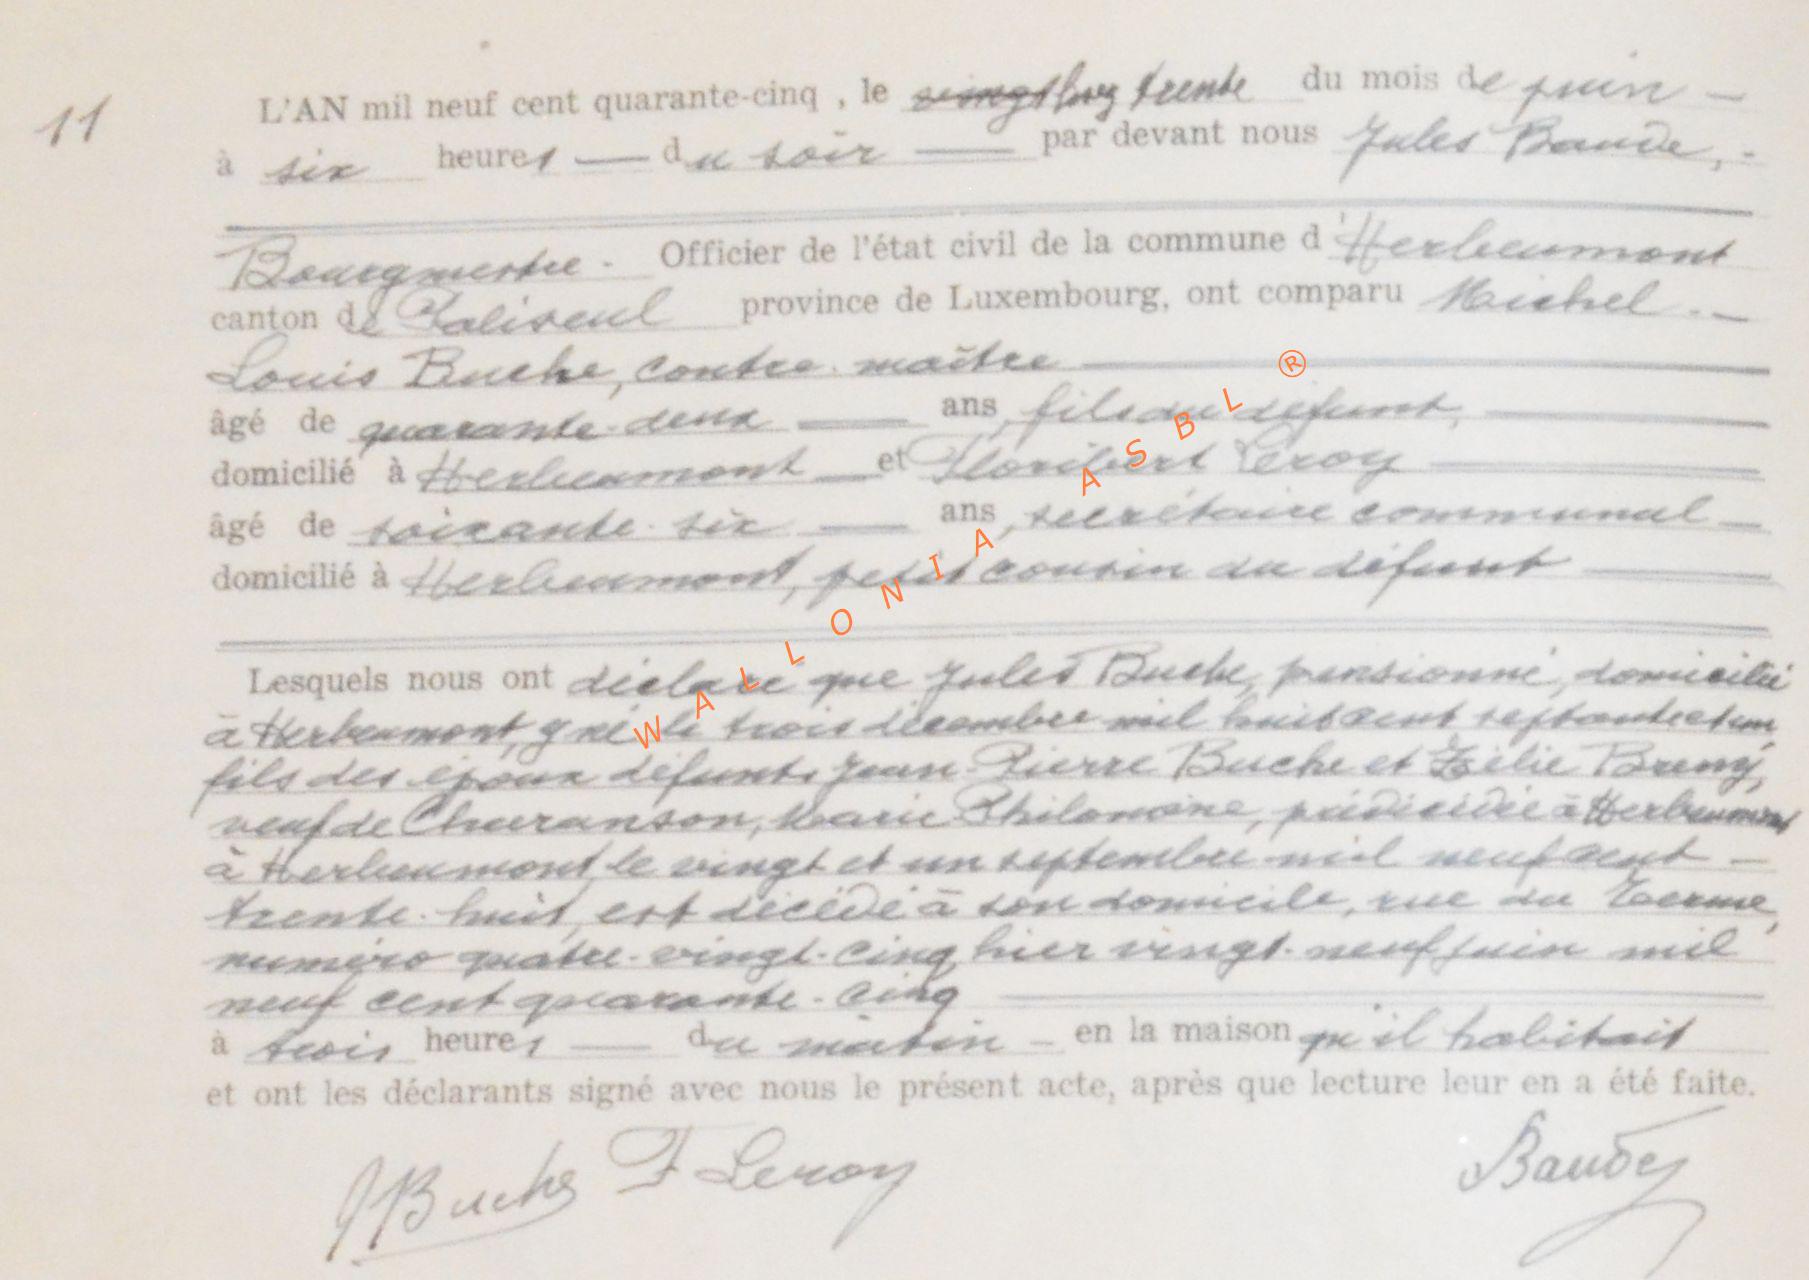 11
L'AN mil neuf cent quarante-cinq , le trente du mois de juin
à six heures du soir par devant nous Jules Baude,
Bourgmestre. Officier de l'état civil de la commune d'Herbeumont
canton de Paliseul province de Luxembourg, ont comparu Michel
Louis Buche, contre-maître
âgé de quarante-deux ans, fils du défunt,
domicilié à Herbeumont et Floribert Leroy
âgé de soixante-six ans, secrétaire communal
domicilié à Herbeumont, petit cousin du défunt
Lesquels nous ont déclaré que Jules Buche, pensionné, domicilié
à Herbeumont, y né le trois décembre mil huit cent septante et un
fils des époux défunts Jean-Pierre Buche et Zélie Bremy,
veuf de Marie Philomène, à Herbeumont
à Herbeumont, le vingt et un septembre mil neuf cent
trente-huit, est décédé à son domicile, rue du Terme,
numéro quatre-vingt-cinq hier vingt-neuf juin mil
neuf cent quarante-cinq
à trois heures du matin en la maison qu'il habitait
et ont les déclarants signé avec nous le présent acte, après que lecture leur en a été faite.
Buche F Leroy Baude
WALLONIA ASBL ®